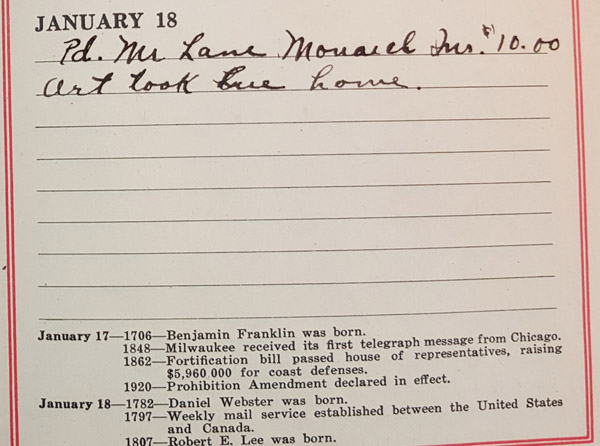 JANUARY 18
Pd. Mr Lane Monarch Ins. $10.00
Art took home.
January 17—1706—Benjamin Franklin was born.
1848—Milwaukee received its first telegraph message from Chicago.
1862—Fortification bill passed house of representatives, raising
$5,960 000 for coast defenses.
1920—Prohibition Amendment declared in effect.
January 18—1782—Daniel Webster was born.
1797—Weekly mail service established between the United States
and Canada.
1807—Robert E. Lee was born.